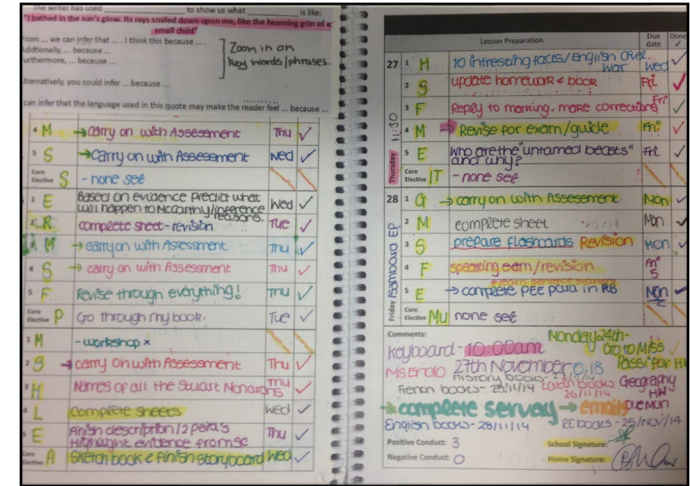 The writer has used ____ to show us what ____ is like:
"I bathed in the sun's glow. Its rays smiled down upon me, like the beaming grin of a
small child"
From ... we can infer that ... I think this because ...
Additionally, ... because ...
Furthermore, ... because ...
Zoom in on
key words/phrases.
Alternatively, you could infer ... because ...
can infer that the language used in this quote may make the reader feel ... because ...
4 M → carry on with Assessment Thu ✓
5 S → carry on with Assessment Wed ✓
Core Elective S - none set
1 E Based on evidence predict what will happen to McCarthy/inference reasons. Wed ✓
2 R complete sheet - revision Tue ✓
3 M → carry on with Assessment Thu ✓
4 S → carry on with Assessment Thu ✓
5 F Revise through everything! Thu ✓
Core Elective P Go through my book. Tue ✓
1 M - workshop x
2 g → carry On with Assessment Thu ✓
3 H Names of all the Stuart Monarchs Thu ✓
4 L Complete sheets Wed ✓
5 E Finish description/2 para's Highlight evidence from sc Thu ✓
Core Elective A Sketch book & finish storyboard Wed ✓
Lesson Preparation Due date Done ✓
27 1 H 10 intresting facts/English Civil war Wed ✓
2 S update homework & book Fri ✓
3 F Reply to marking, more corrections Fri ✓
Thursday 11:30
4 M → Revise for exam/guide Fri ✓
5 E Who are the "untamed beasts" and why? Fri ✓
Core Elective IT - none set
28 1 G → carry on with Assessment Mon ✓
2 M complete sheet Mon ✓
3 S prepare flashcards Revision Mon ✓
Friday
4 F speaking exam/revision Fri 5
5 E → complete PEE para in RB Mon ✓
Core Elective Mu none set
Comments:
Monday 24th -
Keyboard - 10:00am Go to Miss
27th November
History books -
French books - 25/11/14 Latin books 26/11/14 Geography HW
→ complete servay → email Due Mon
English books - 28/11/14 RE books - 25/Nov/14
Positive Conduct: 3 School Signature:
Negative Conduct: 0 Home Signature: